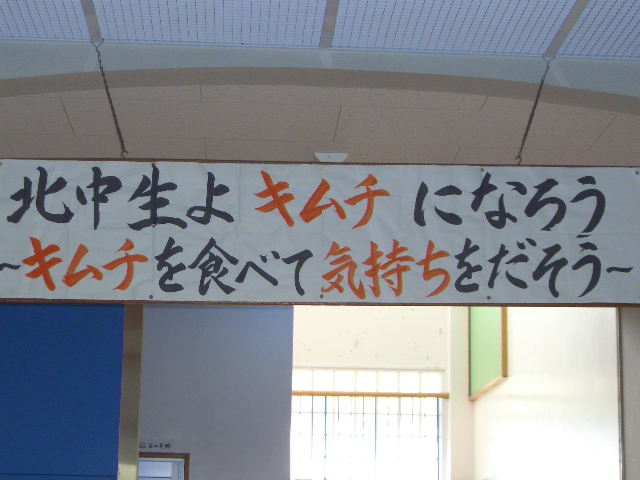 北中生よ キムチ になろう
~キムチを食べて気持ちをだそう~